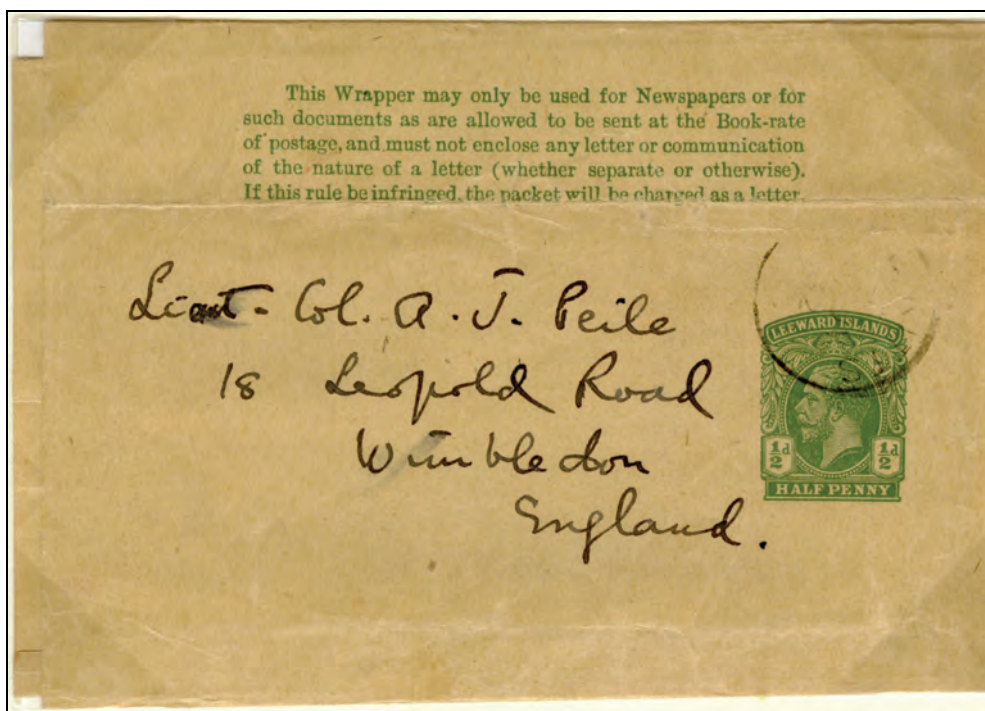 This Wrapper may only be used for Newspapers or for
such documents as are allowed to be sent at the Book-rate
of postage, and must not enclose any letter or communication
of the nature of a letter (whether separate or otherwise).
If this rule be infringed, the packet will be charged as a letter.
Lieut- Col. A. J. Peile
18 Leopold Road
Wimbledon
England.
LEEWARD ISLANDS
½d ½d
HALF PENNY